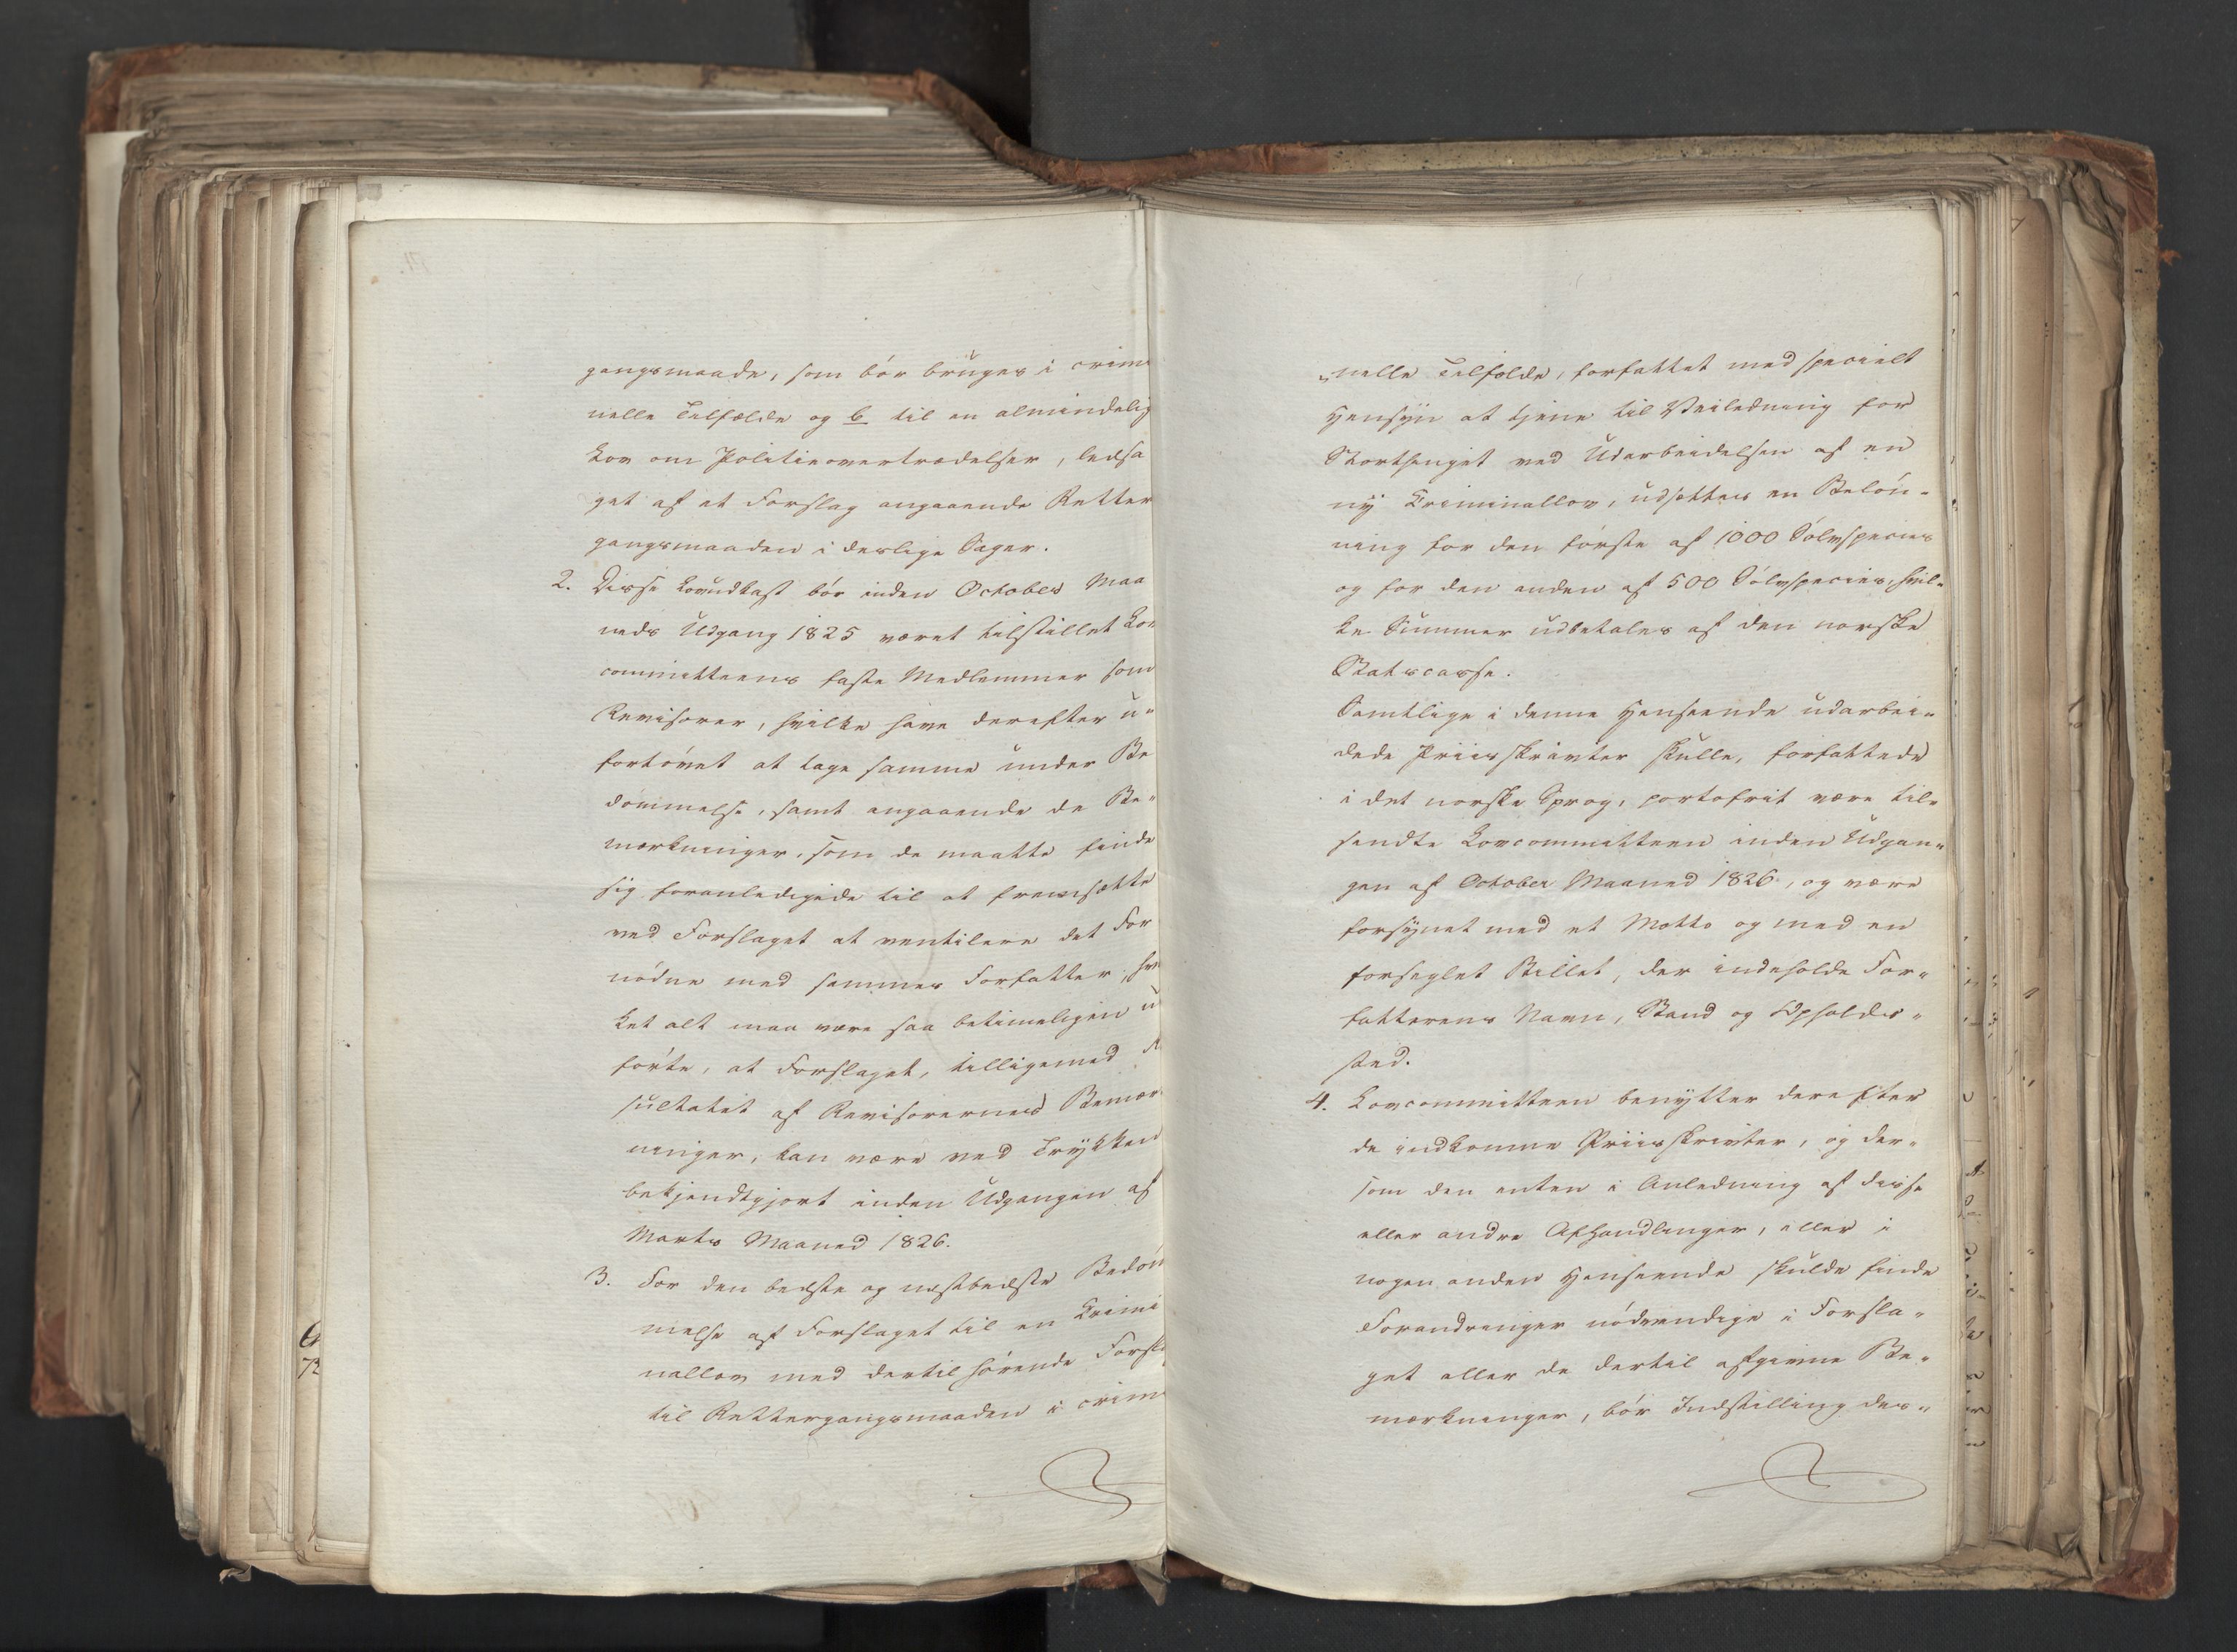 gangsmaade, som bör bruges i crimi
nelle Tilfælde og b til en almindelig
Lov om Politieovertrædelser, ledsa
get af et Forslag angaaende Retter
gangsmaaden i deslige Sager.
2. Disse Lovudkast bör inden October Maa
neds Udgang 1825 været tilstillet Lov
committeens faste Medlemmer som
Revisorer, hvilke have derefter u-
fortövet at tage samme under Be
dömmelse, samt angaaende de Be-
mærkninger, som de maatte finde
sig foranledigede til at fremsætte
ved Forslaget at ventilere det For
nödne med sammes Forfatter, hvil
ket alt maa være saa betimeligen u
förte, at Forslaget, tilligemed R
sultatet af Revisorernes Bemær
ninger, kan være ved Trykken
bekjendtgjort inden Udgangen af
Marts Maaned 1826.
3. For den bedste og næstbedste Bedöm
melse af Forslaget til en Crimi
nallov med dertil hörende Forsla
til Rettergangsmaaden i crimi
nelle Tilfælde, forfattet med specielt
Hensyn at tjene til Veiledning for
Storthinget ved Udarbeidelsen af en
ny Criminallov, udsættes en Belön-
ning for den förste af 1000 Sölvspecies
og for den anden af 500 Sölvspecies, hvil-
ke Summer udbetales af den norske
Statscasse.
Samtlige i denne Henseende udarbei-
dede Priisskrivter skulle, forfattede
i det norske Sprog, portofrit være til-
sendte Lovcommitteen inden Udgan-
gen af October Maaned 1826, og være
forsynet med et Motto og med en
forseglet Billet, der indeholde For-
fatterens Navn, Stand og Opholds-
sted.
4. Lovcommitteen benytter derefter
de indkomne Priisskrivter, og der-
som den enten i Anledning af disse
eller andre Afhandlinger, eller i
nogen anden Henseende skulde finde
Forandringer nödvendige i Forsla-
get eller de dertil afgivne Be-
mærkninger, bör Indstilling des-